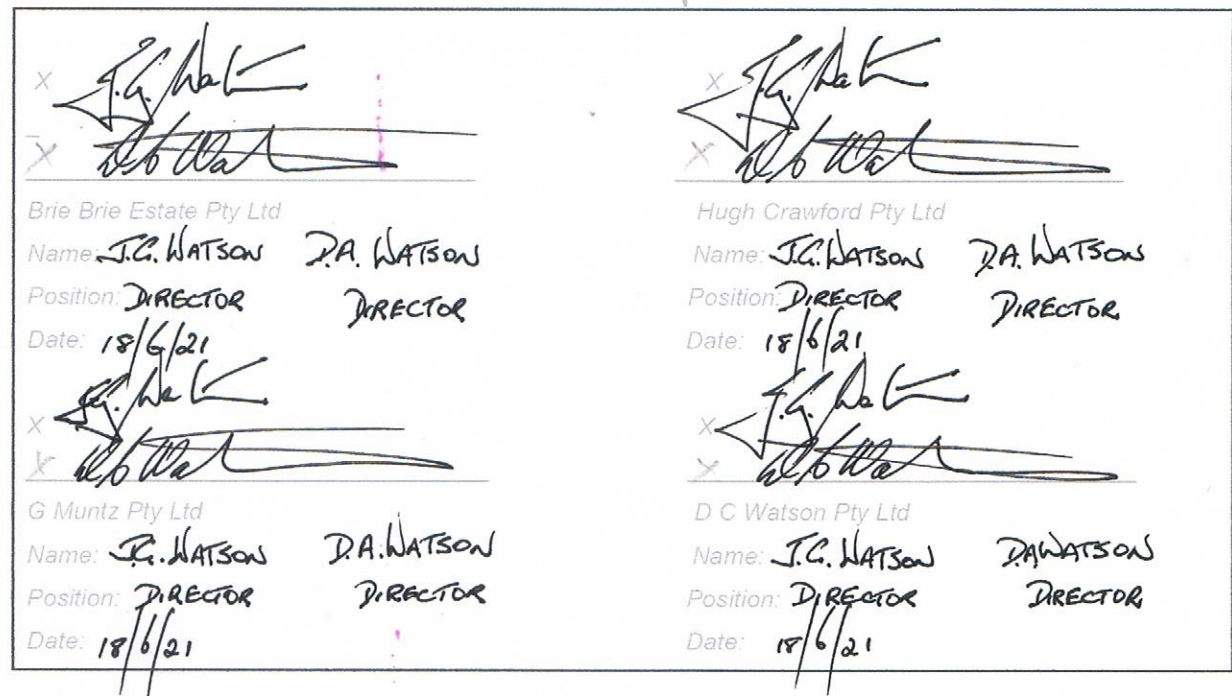 X J.G. Wat
X
Brie Brie Estate Pty Ltd
Name: J.G. WATSON D.A. WATSON
Position: DIRECTOR DIRECTOR
Date: 18/6/21
X J.G. Wat
X
Hugh Crawford Pty Ltd
Name: J.G. WATSON D.A. WATSON
Position: DIRECTOR DIRECTOR
Date: 18/6/21
X J.G. Wat
X
G Muntz Pty Ltd
Name: J.G. WATSON D.A. WATSON
Position: DIRECTOR DIRECTOR
Date: 18/6/21
X J.G. Wat
X
D C Watson Pty Ltd
Name: J.G. WATSON D.A WATSON
Position: DIRECTOR DIRECTOR
Date: 18/6/21